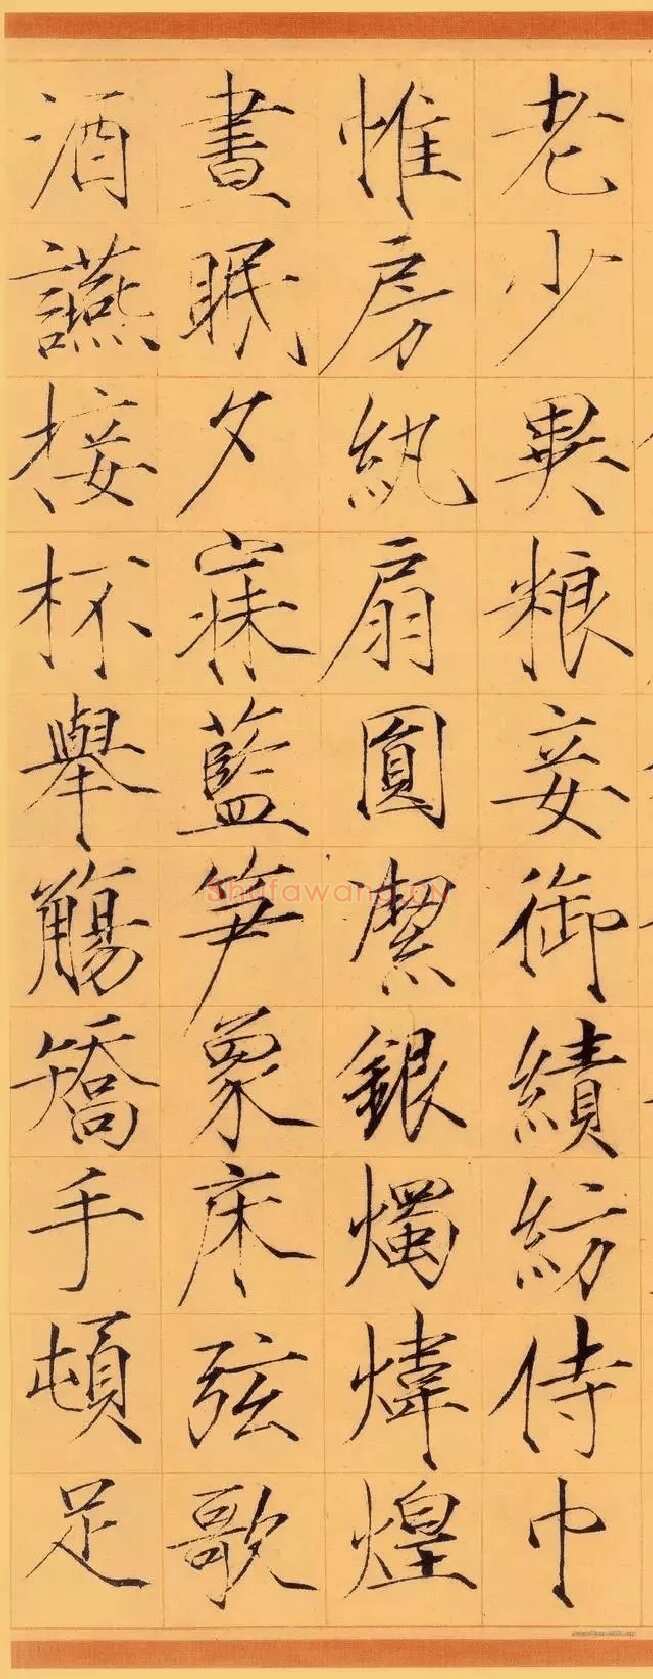 老少異粮妾御績紡侍巾
帷房紈扇圓潔銀燭煒煌
晝眠夕寐藍笋象床弦歌
酒讌接杯舉觴矯手頓足
Shufawang.cn